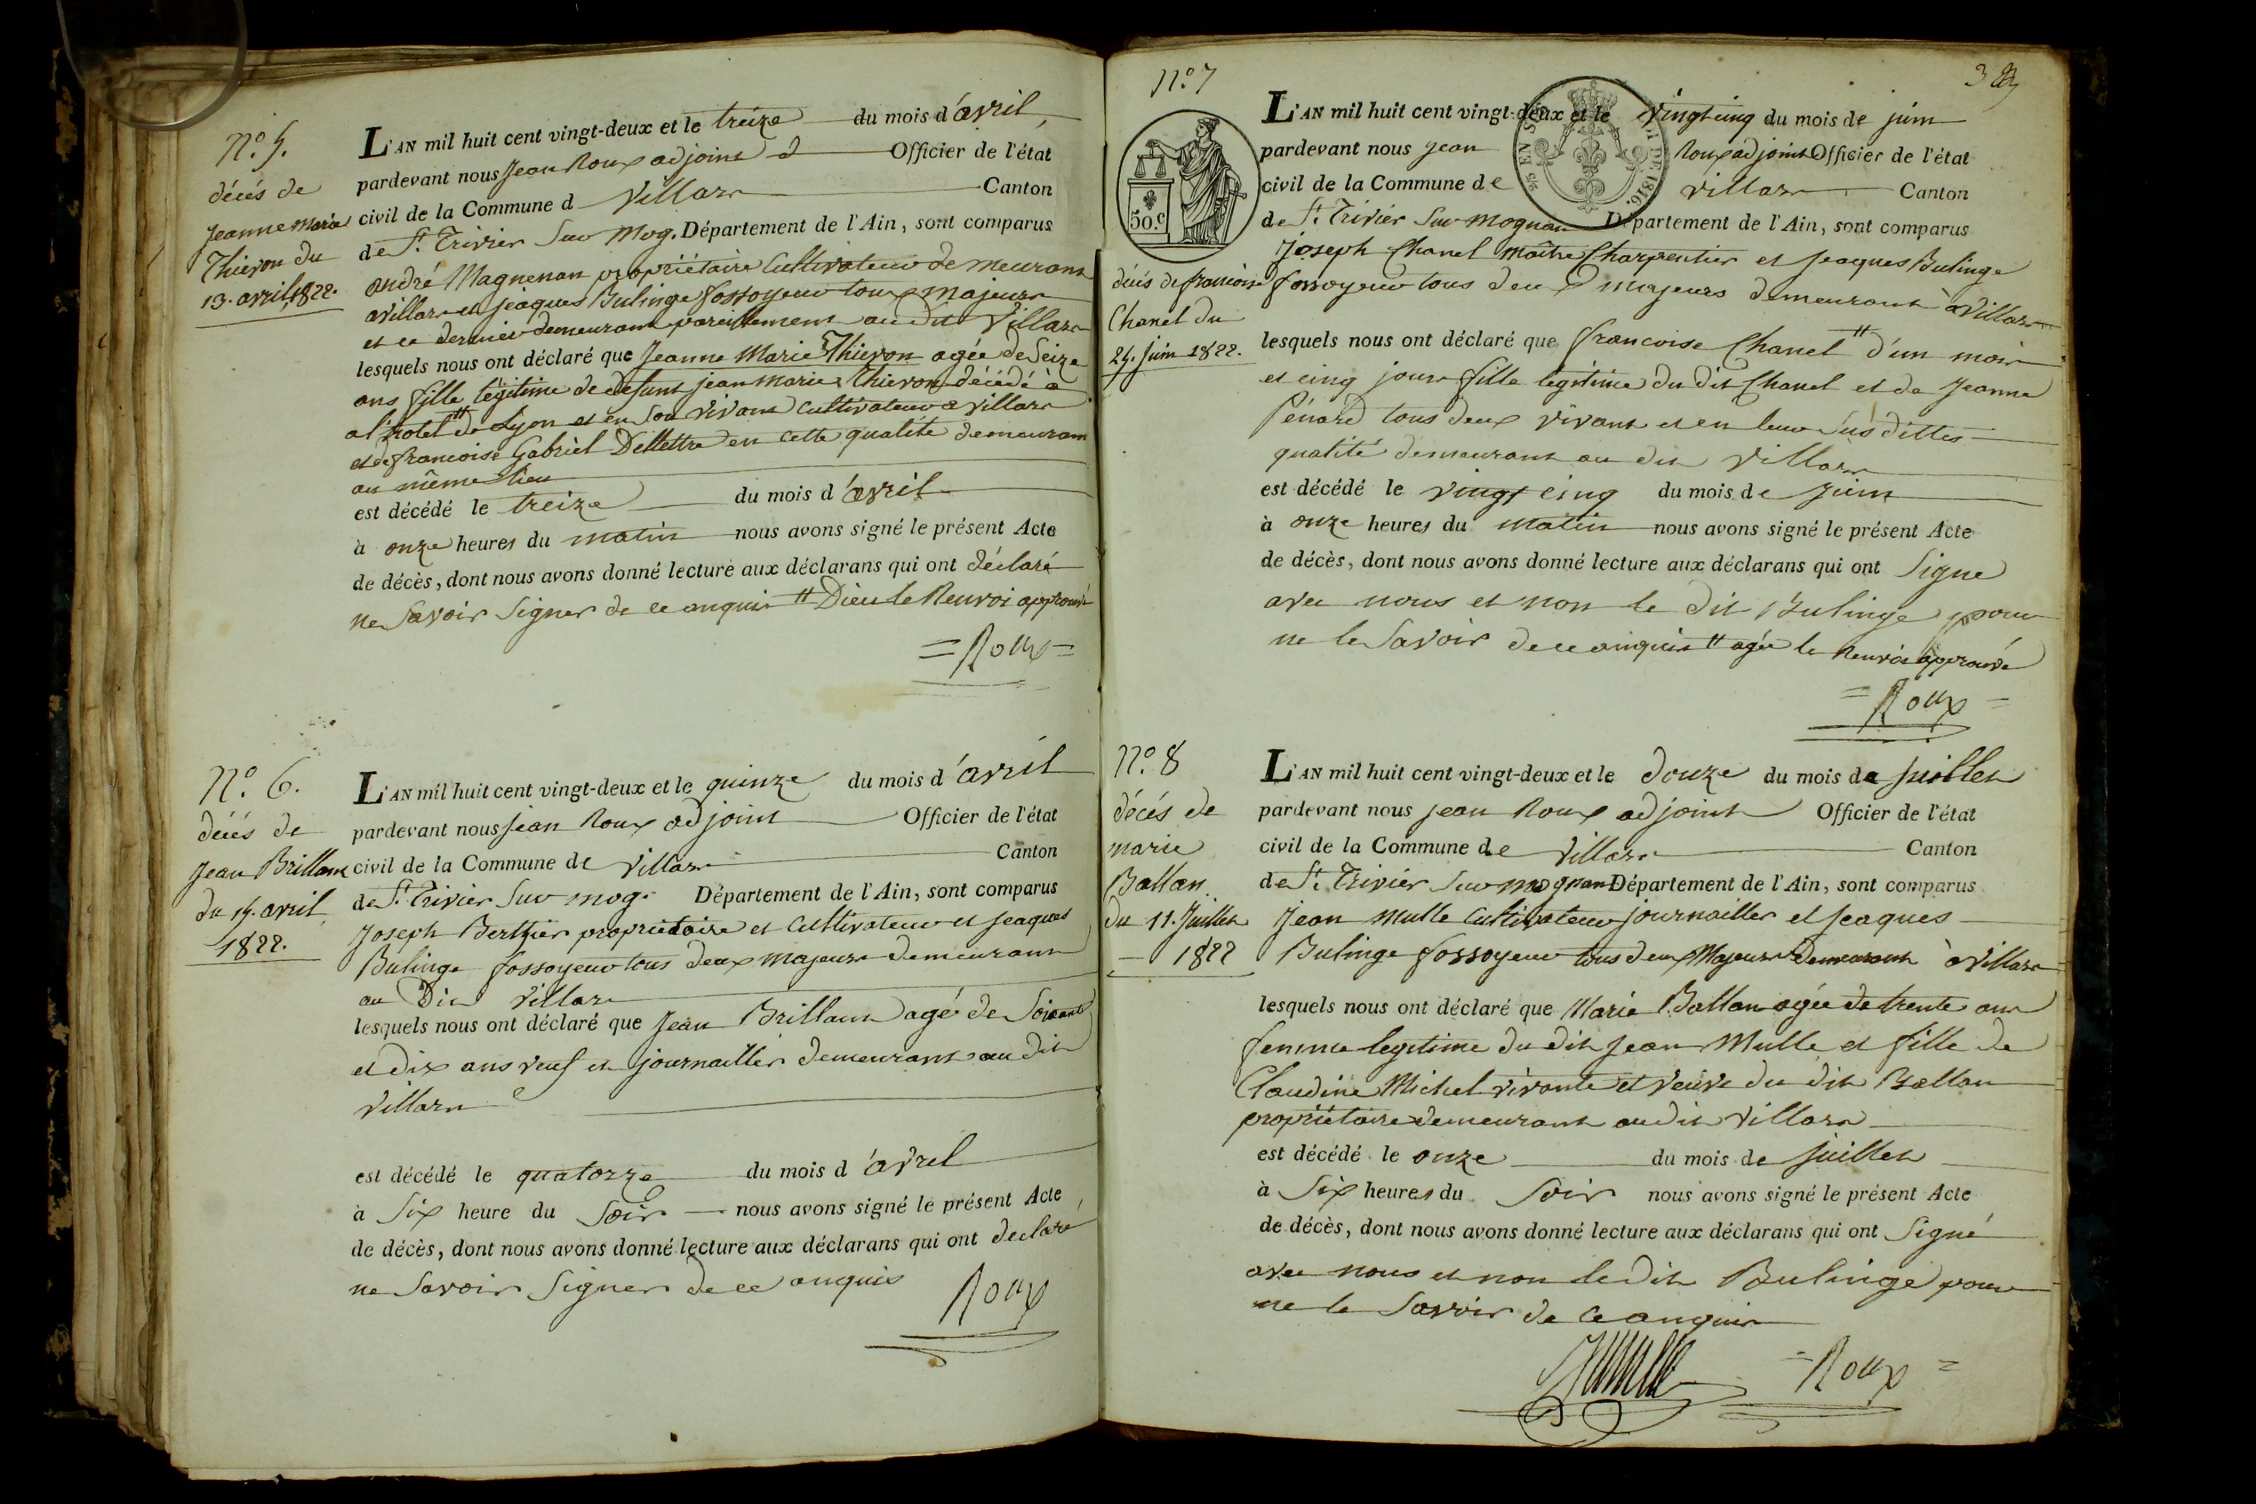 N.o 5.
décès de
Jeanne Marie
Thievon du
13. avril 1822.
L'AN mil huit cent vingt-deux et le treize du mois d'avril,
pardevant nous Jean Roux adjoint d Officier de l'état
civil de la Commune d Villars Canton
de St. Trivier Sur Mog. Département de l'Ain, sont comparus
andré Magnenan propriétaire Cultivateur demeurant
a villars et jeaques Bulinge fossoyeur tous majeurs
et ce dernier demeurant pareillement au dit Villars
lesquels nous ont déclaré que Jeanne Marie Thievon agée de Seize
ans fille légitime de défunt jean marie Thievon décédé à
a l'hotel # de Lyon et en Son vivant Cultivateur a villars
et de francoise Gabriel Dellettre en cette qualité demeurant
au même lieu
est décédé le treize du mois d'avril
à onze heures du matin nous avons signé le présent Acte
de décès, dont nous avons donné lecture aux déclarans qui ont déclaré
ne Savoir Signer de ce anquis # Dieu le Renvoi approuvé
= Roux =
N.o 6.
décés de
Jean Brillant
du 14. avril
1822.
L'AN mil huit cent vingt-deux et le quinze du mois d'avril
pardevant nous Jean Roux adjoint Officier de l'état
civil de la Commune de Villars Canton
de St. Trivier Sur mog. Département de l'Ain, sont comparus
Joseph Berthier propriétaire et Cultivateur et jeaques
Bulinge fossoyeur tous deux majeurs demeurant
au Dit Villars
lesquels nous ont déclaré que Jean Brillant agé de Soixante
et dix ans veuf et journaillier demeurant au dit
Villars
est décédé le quatorze du mois d'avril
à Six heure du Soir nous avons signé le présent Acte
de décès, dont nous avons donné lecture aux déclarans qui ont declaré
ne Savoir Signer de ce anquis
Roux
N.o 7
50.c
décés de francoise
Chanel du
25. juin 1822.
L'AN mil huit cent vingt-deux et le vingt cinq du mois de juin
pardevant nous jean Roux adjoint Officier de l'état
civil de la Commune de villars Canton
de St. Trivier Sur mognan Département de l'Ain, sont comparus
Joseph Chanel maître Charpentier et Jeaques Bulinge
fossoyeur tous deux majeurs demeurant à Villars
lesquels nous ont déclaré que francoise Chanel # d'un mois
et cinq jours fille légitime du dit Chanel et de Jeanne
Pénard tous deux vivant et en leur Sus dittes
qualité demeurant au dit Villars
est décédé le vingt cinq du mois de juin
à onze heures du matin nous avons signé le présent Acte
de décès, dont nous avons donné lecture aux déclarans qui ont Signe
avec nous et non le dit Bulinge pour
ne le Savoir de ce anquis # agée le Renvoi approuvé
= Roux =
N.o 8
décés de
marie
Ballan
du 11. Juillet
1822
L'AN mil huit cent vingt-deux et le Douze du mois de juillet
pardevant nous jean Roux adjoint Officier de l'état
civil de la Commune de Villars Canton
de St. Trivier Sur mognan Département de l'Ain, sont comparus
Jean Mulle Cultivateur journaillier et jeaques
Bulinge fossoyeur tous deux Majeurs demeurant à Villars
lesquels nous ont déclaré que Marie Ballan agée de trente ans
femme legitime du dit Jean Mulle et fille de
Claudine Michel vivante et veuve du dit Ballan
propriétaire demeurant au dit Villars
est décédé le onze du mois de juillet
à Six heures du Soir nous avons signé le présent Acte
de décès, dont nous avons donné lecture aux déclarans qui ont Signé
avec nous et non le dit Bulinge pour
ne le Savoir de ce anquis
= Roux =